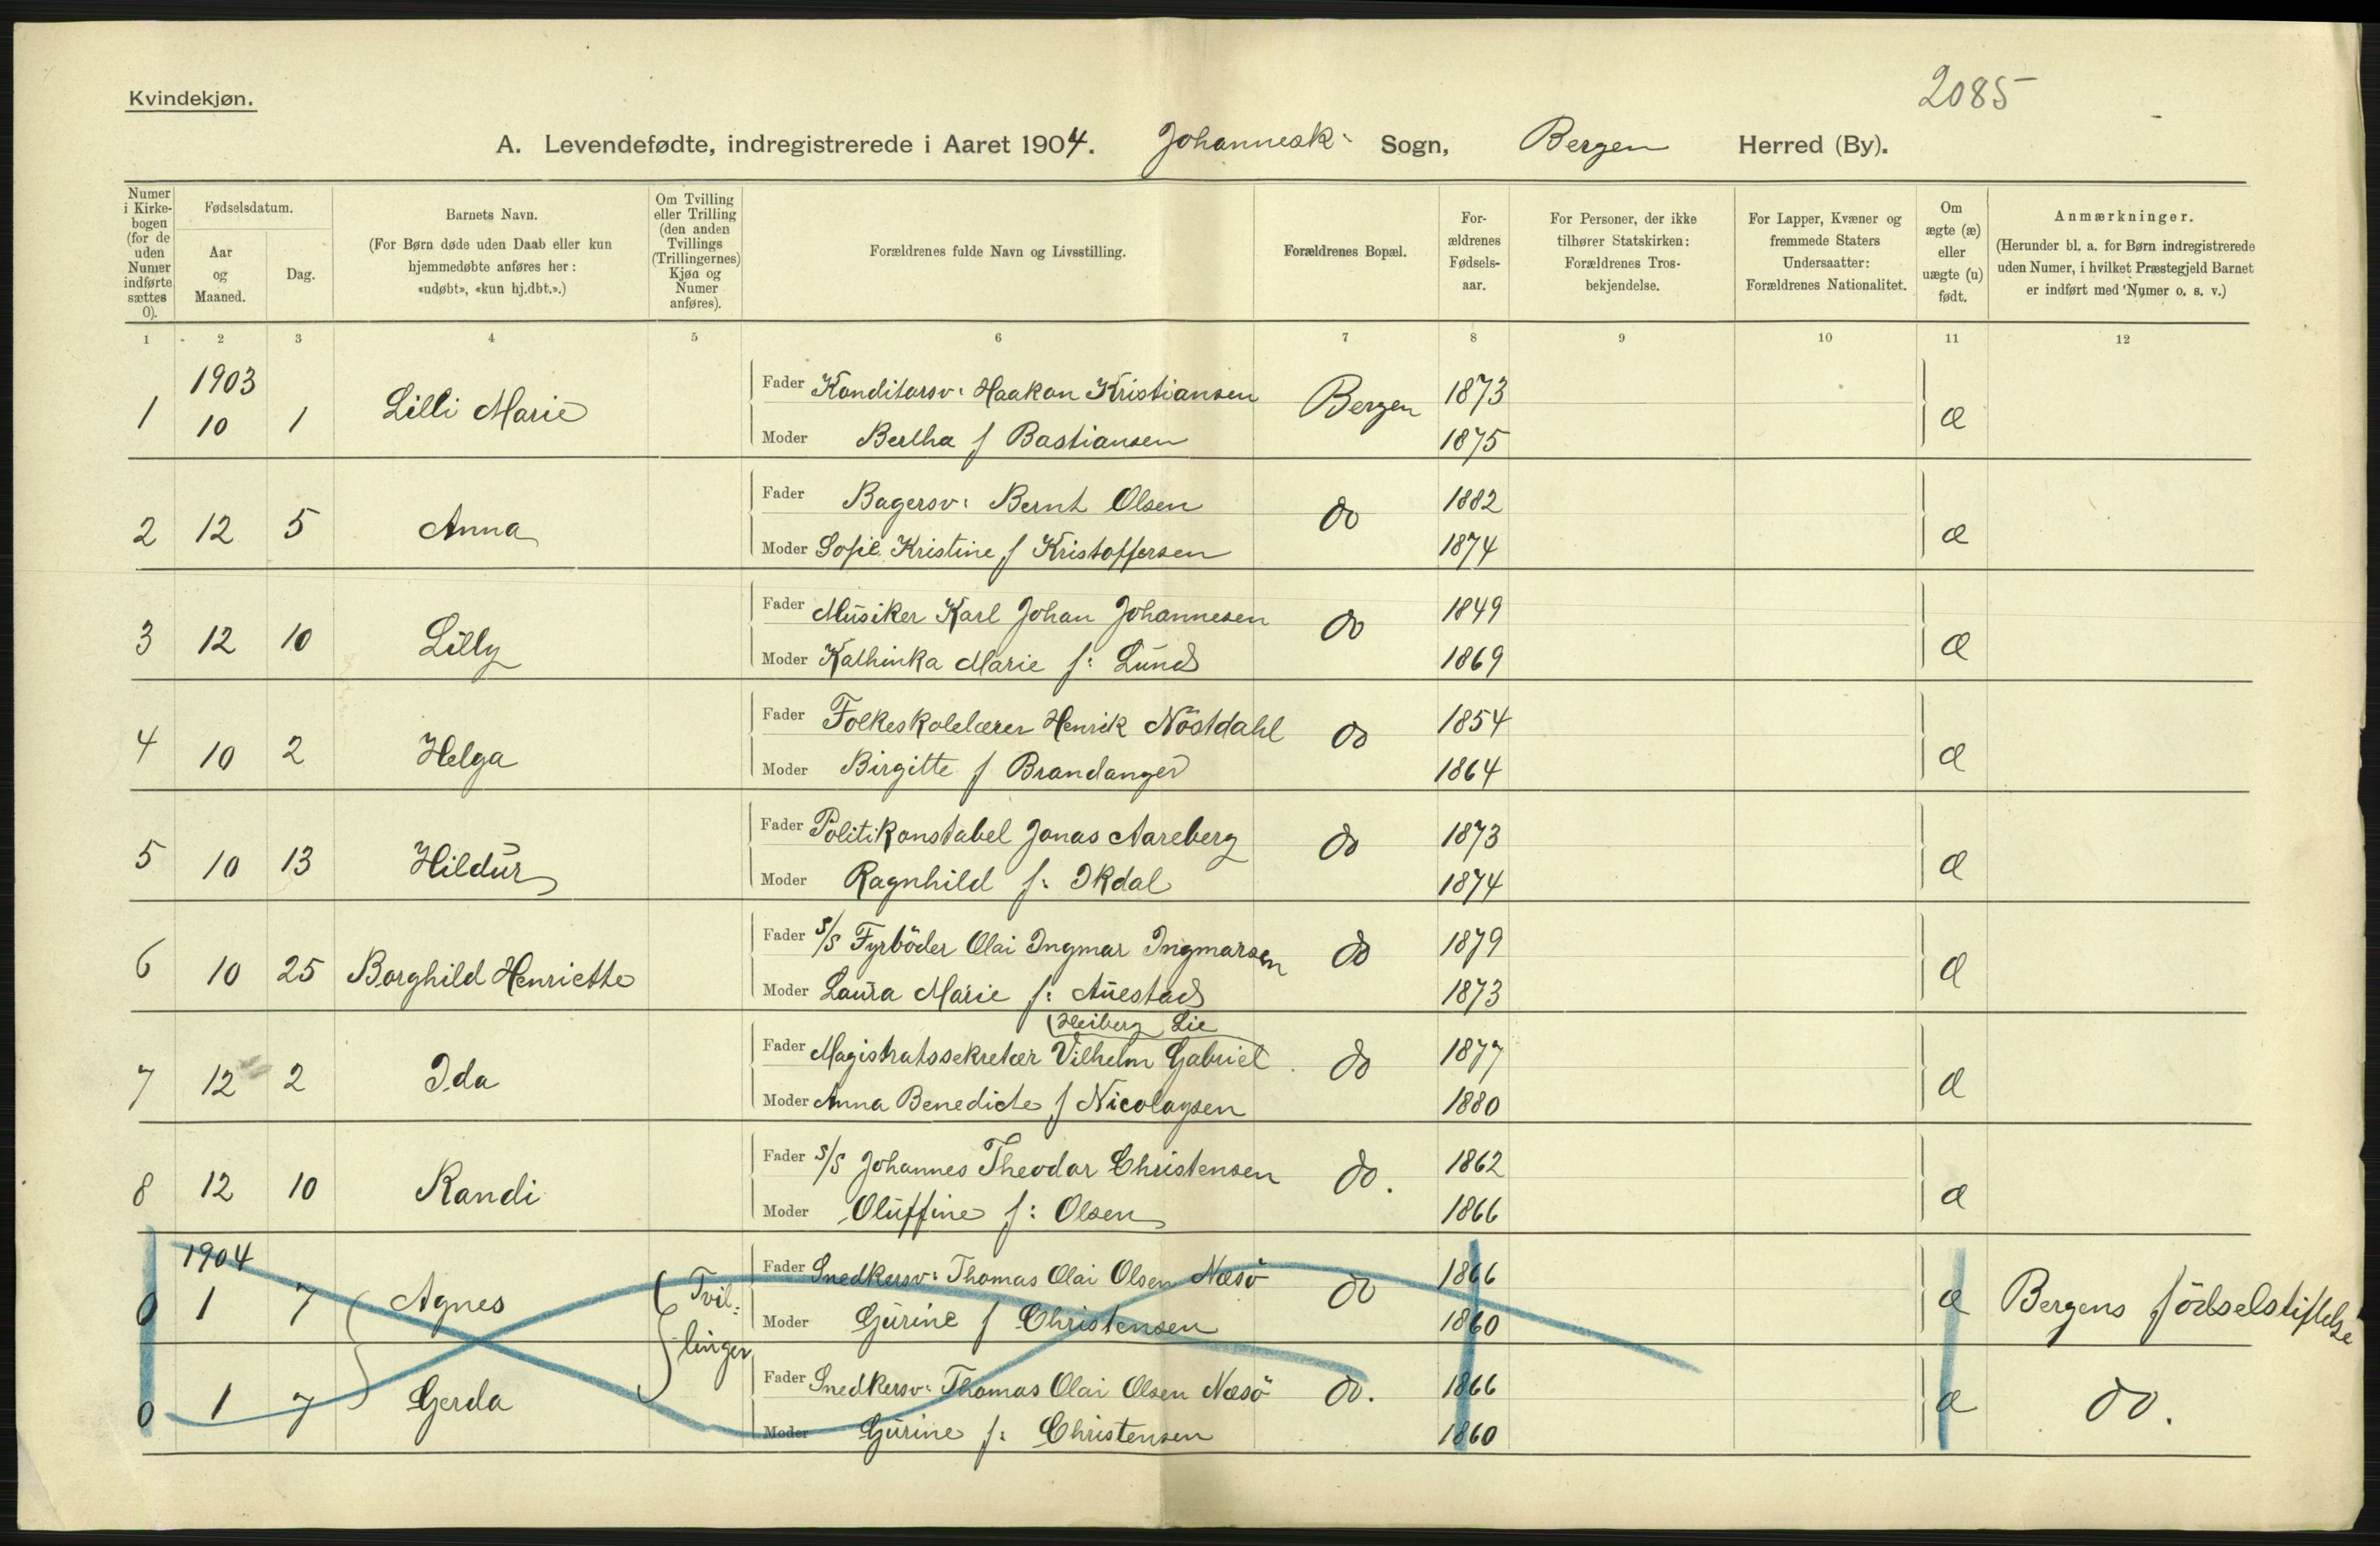 2085
Kvindekjøn.
A. Levendefødte, indregistrerede i Aaret 1904. Johannesk: Sogn, Bergen Herred (By).
Numer i Kirke-bogen (for de uden Numer indførte sættes 0).
Fødselsdatum.
Aar og Maaned.
Dag.
Barnets Navn.
(For Børn døde uden Daab eller kun hjemmedøbte anføres her: «udøbt», «kun hj.dbt.».)
Om Tvilling eller Trilling (den anden Tvillings (Trillingernes) Kjøn og Numer anføres).
Forældrenes fulde Navn og Livsstilling.
Forældrenes Bopæl.
For-ældrenes Fødsels-aar.
For Personer, der ikke tilhører Statskirken: Forældrenes Tros-bekjendelse.
For Lapper, Kvæner og fremmede Staters Undersaatter: Forældrenes Nationalitet.
Om ægte (æ) eller uægte (u) født.
Anmærkninger.
(Herunder bl. a. for Børn indregistrerede uden Numer, i hvilket Præstegjeld Barnet er indført med Numer o. s. v.)
1 2 3 4 5 6 7 8 9 10 11 12
1903
1 10 1 Lilli Marie Fader Konditorsv: Haakon Kristiansen Bergen 1873 æ
Moder Bertha f Bastiansen 1875
2 12 5 Anna Fader Bagersv: Bernt Olsen do 1882 æ
Moder Sofie Kristine f Kristoffersen 1874
3 12 10 Lilly Fader Musiker Karl Johan Johannesen do 1849 æ
Moder Kathinka Marie f: Lund 1869
4 10 2 Helga Fader Folkeskolelærer Henrik Nöstdahl do 1854 æ
Moder Birgitte f Brandanger 1864
5 10 13 Hildur Fader Politikonstabel Jonas Aareberg do 1873 æ
Moder Ragnhild f: Ikdal 1874
6 10 25 Borghild Henriette Fader S/S Fyrböder Olai Ingmar Ingmarsen do 1879 æ
Moder Laura Marie f: Auestad 1873
(Heiberg Lie
7 12 2 Ida Fader Magistratssekretær Vilhelm Gabriel do 1877 æ
Moder Anna Benedicte f Nicolaysen 1880
8 12 10 Randi Fader S/S Johannes Theodor Christensen do. 1862 æ
Moder Oluffine f: Olsen 1866
1904
0 1 7 Agnes Tvil: Fader Snedkersv: Thomas Olai Olsen Næsö do 1866 æ Bergens födselstiftelse
linger Moder Gurine f Christensen 1860
0 1 7 Gerda Fader Snedkersv: Thomas Olai Olsen Næsö do. 1866 æ do.
Moder Gurine f: Christensen 1860